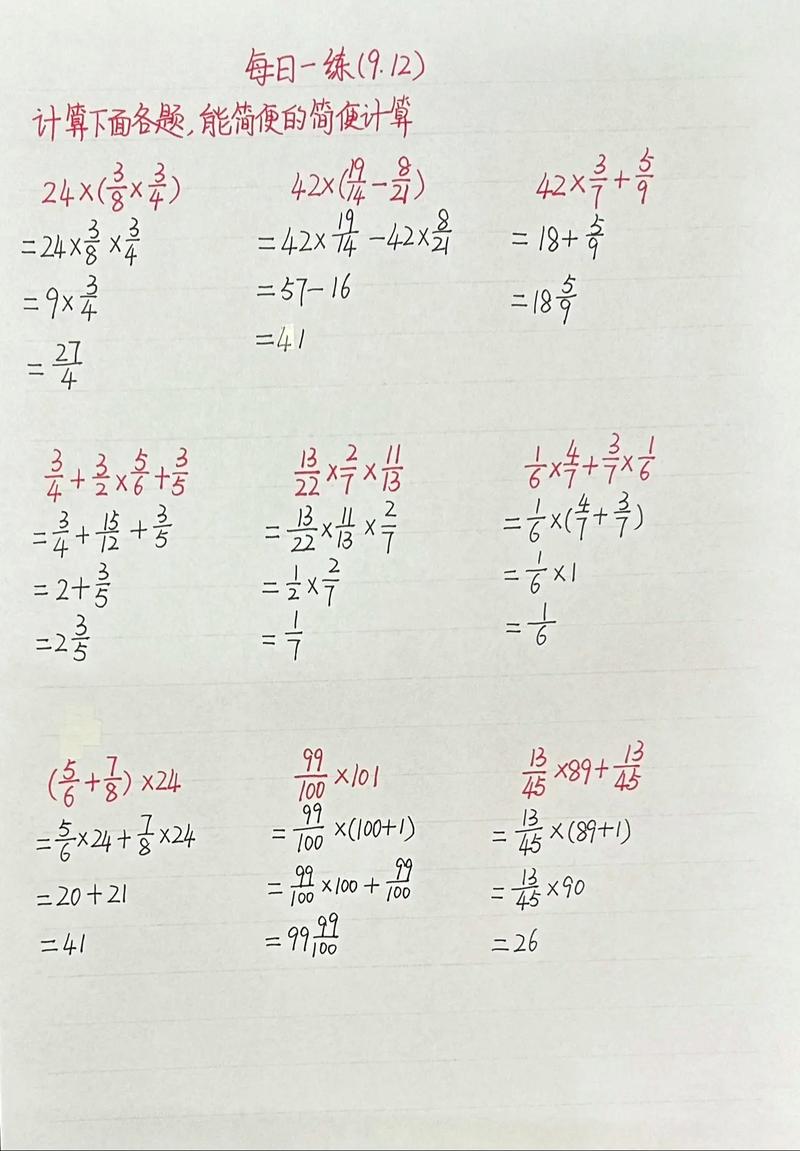 每日一练(9.12)
计算下面各题,能简便的简便计算
24×(3/8×3/4)
=24×3/8×3/4
=9×3/4
=27/4
42×(19/14-8/21)
=42×19/14-42×8/21
=57-16
=41
42×3/7+5/9
=18+5/9
=18 5/9
3/4+3/2×5/6+3/5
=3/4+15/12+3/5
=2+3/5
=2 3/5
13/22×2/7×11/13
=13/22×11/13×2/7
=1/2×2/7
=1/7
1/6×4/7+3/7×1/6
=1/6×(4/7+3/7)
=1/6×1
=1/6
(5/6+7/8)×24
=5/6×24+7/8×24
=20+21
=41
99/100×101
=99/100×(100+1)
=99/100×100+99/100
=99 99/100
13/45×89+13/45
=13/45×(89+1)
=13/45×90
=26